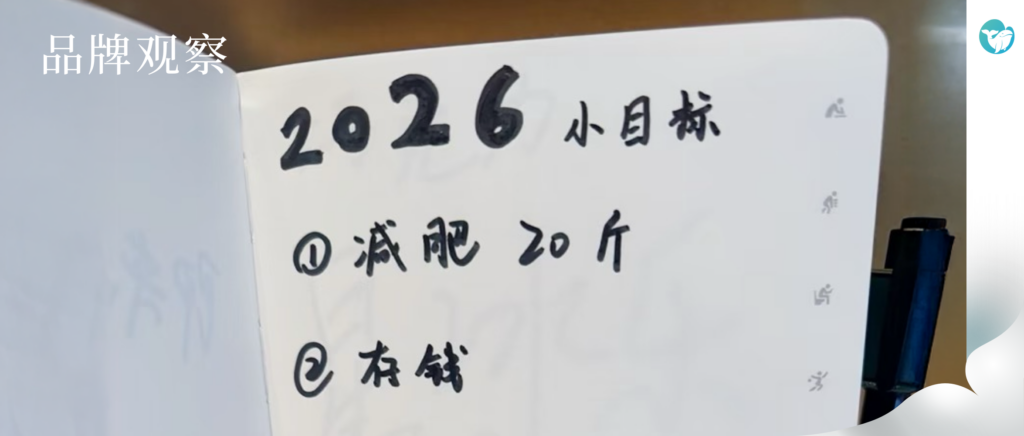 品牌观察
2026 小目标
① 减肥 20斤
② 存钱